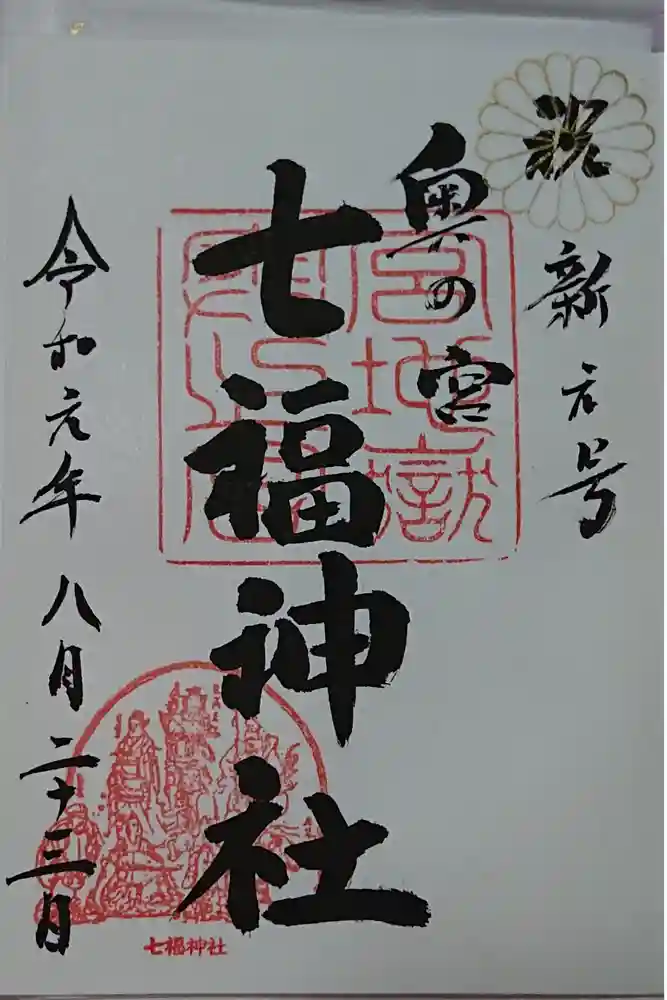 祝
新元号
奥の宮
七福神社
令和元年八月二十三日
宮地嶽
七福神社